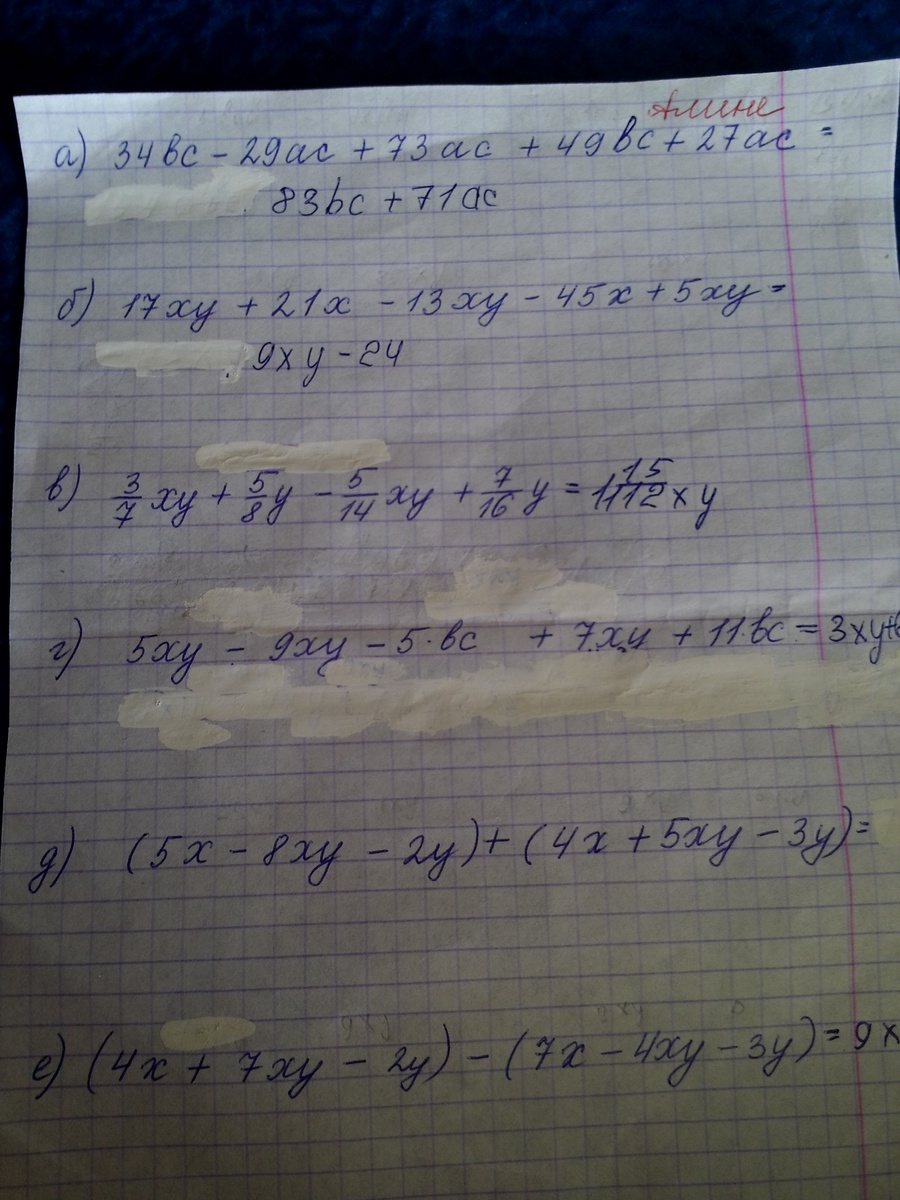 Алине
а) 34вс - 29ас + 73ас + 49вс + 27ас =
83bc + 71ac
б) 17xy + 21x - 13xy - 45x + 5xy =
9xy - 24
в) 3/7 xy + 5/8 y - 5/14 xy + 7/16 y = xy
г) 5xy - 9xy - 5·вс + 7xy + 11·вс = 3xy+
д) (5x - 8xy - 2y) + (4x + 5xy - 3y) =
е) (4x + 7xy - 2y) - (7x - 4xy - 3y) = 9x